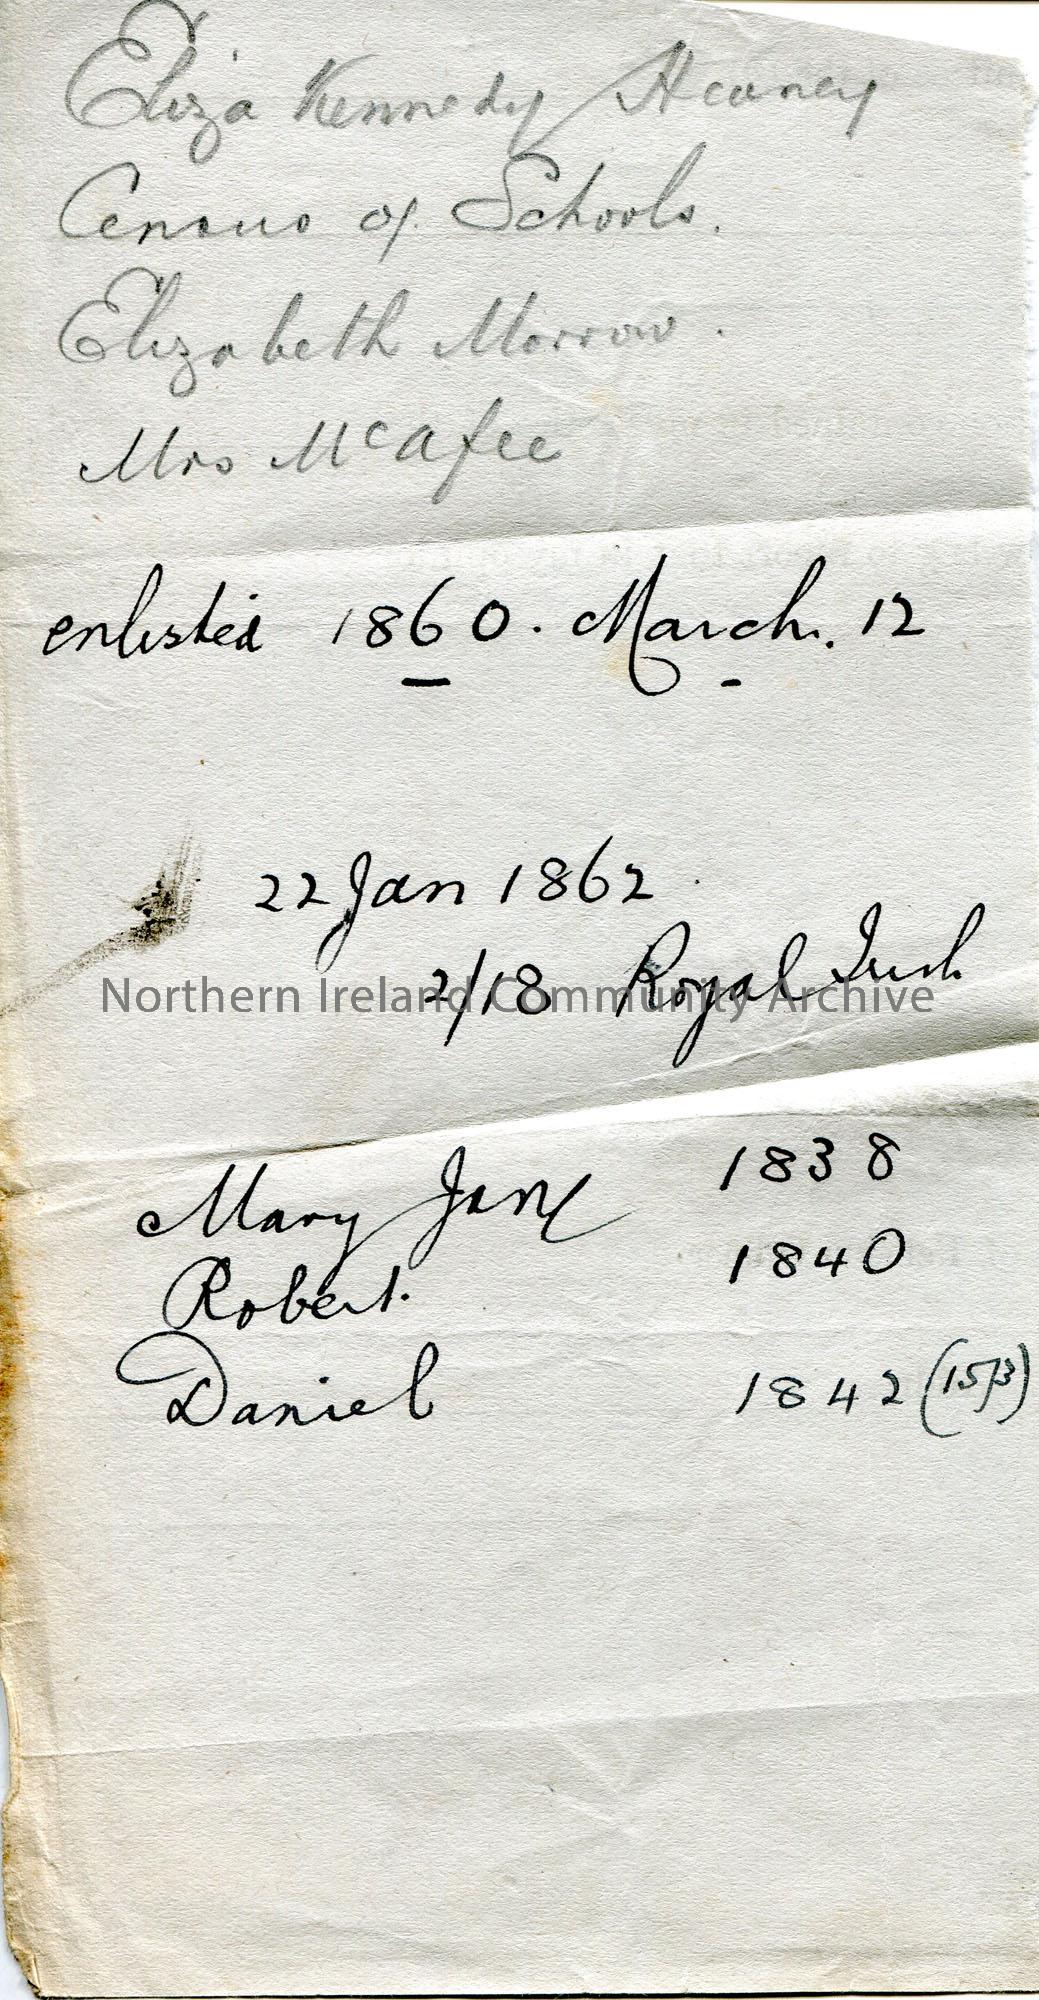 Eliza Kennedy Heaney
Census of Schools.
Elizabeth Morrow.
Mrs McAfee
enlisted 1860. March. 12
22 Jan 1862
2/18 Royal Irish
Northern Ireland Community Archive
Mary Jane 1838
Robert. 1840
Daniel 1842 (15/3)